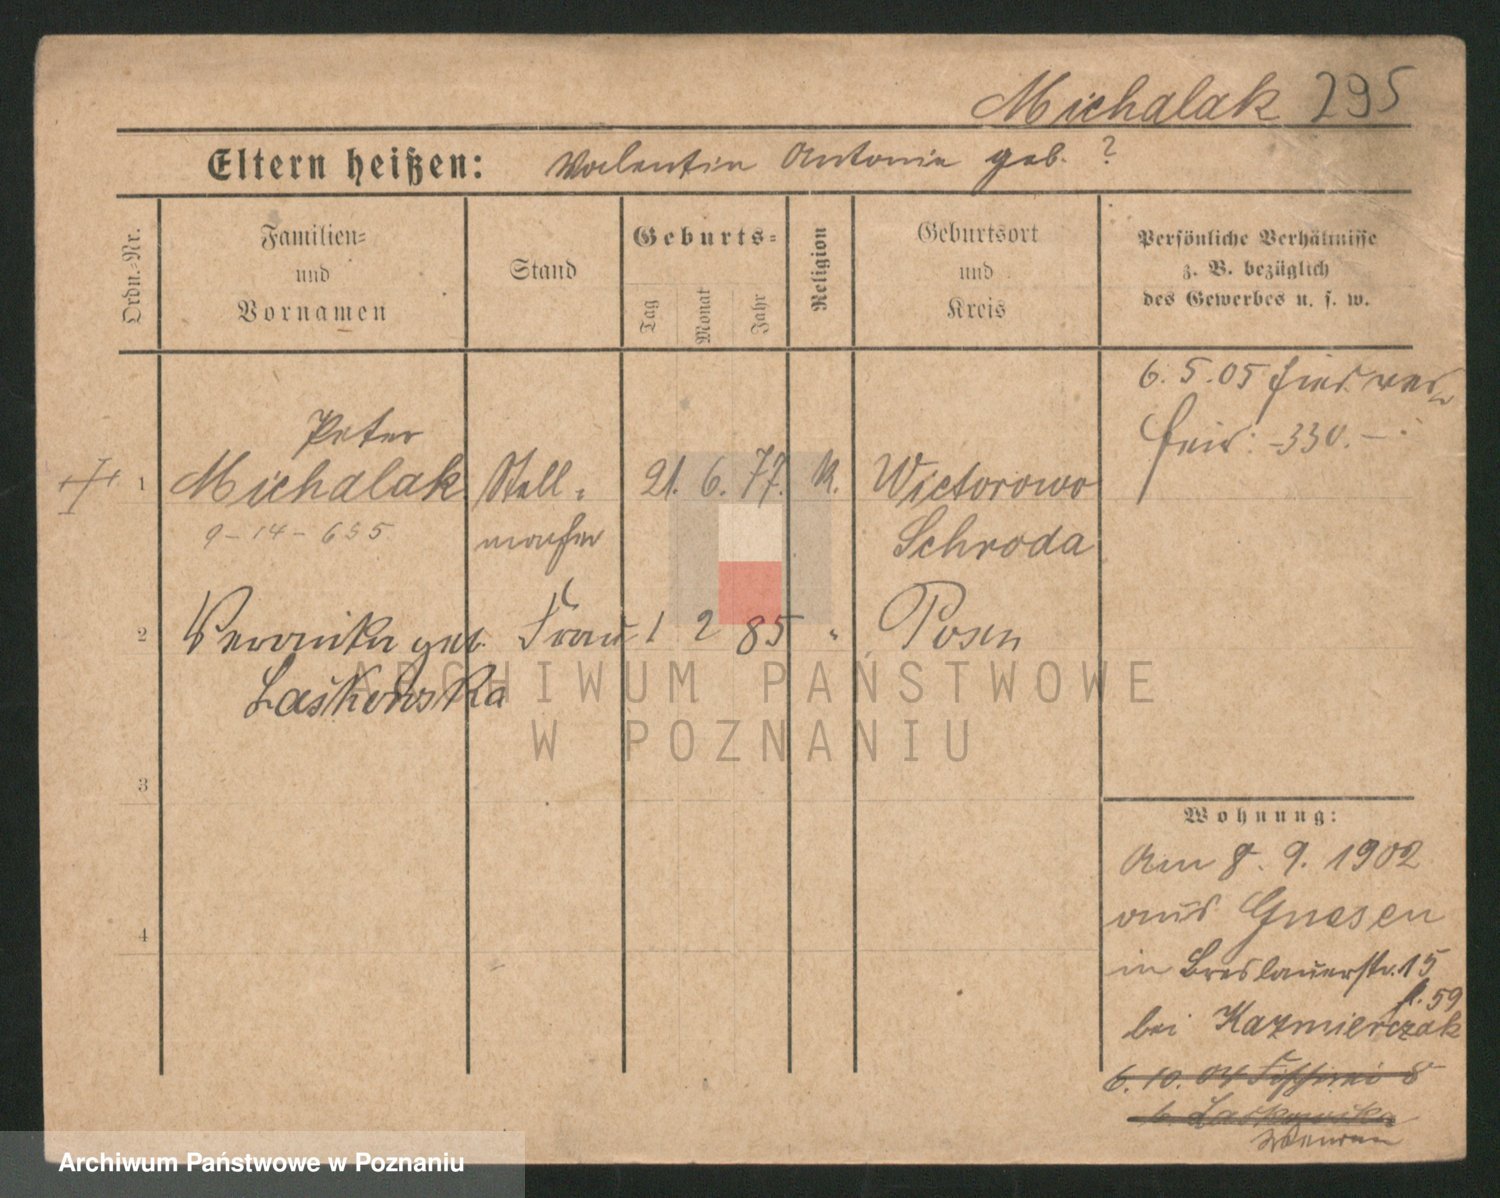 Michalak 295
Eltern heißen: Valentin Antonie geb. ?
Ordn.-Nr.
Familien-
und
Vornamen
Stand
Geburts-
Tag
Monat
Jahr
Religion
Geburtsort
und
Kreis
Persönliche Verhältnisse
z. B. bezüglich
des Gewerbes u. s. w.
6. 5. 05
330.
Peter
1 Michalak Stell- 21. 6. 77. K. Wictorowo
9-14-655 macher Schroda
2 Veronika geb. Frau 1 2 85 " Posen
Laskowska
3
4
Wohnung:
Am 8. 9. 1902
aus Gnesen
in Breslauerstr. 15
bei Kazmierczak
6. 10. 04 Fischerei 8
b. Laskowska
ARCHIWUM PAŃSTWOWE
W POZNANIU
Archiwum Państwowe w Poznaniu